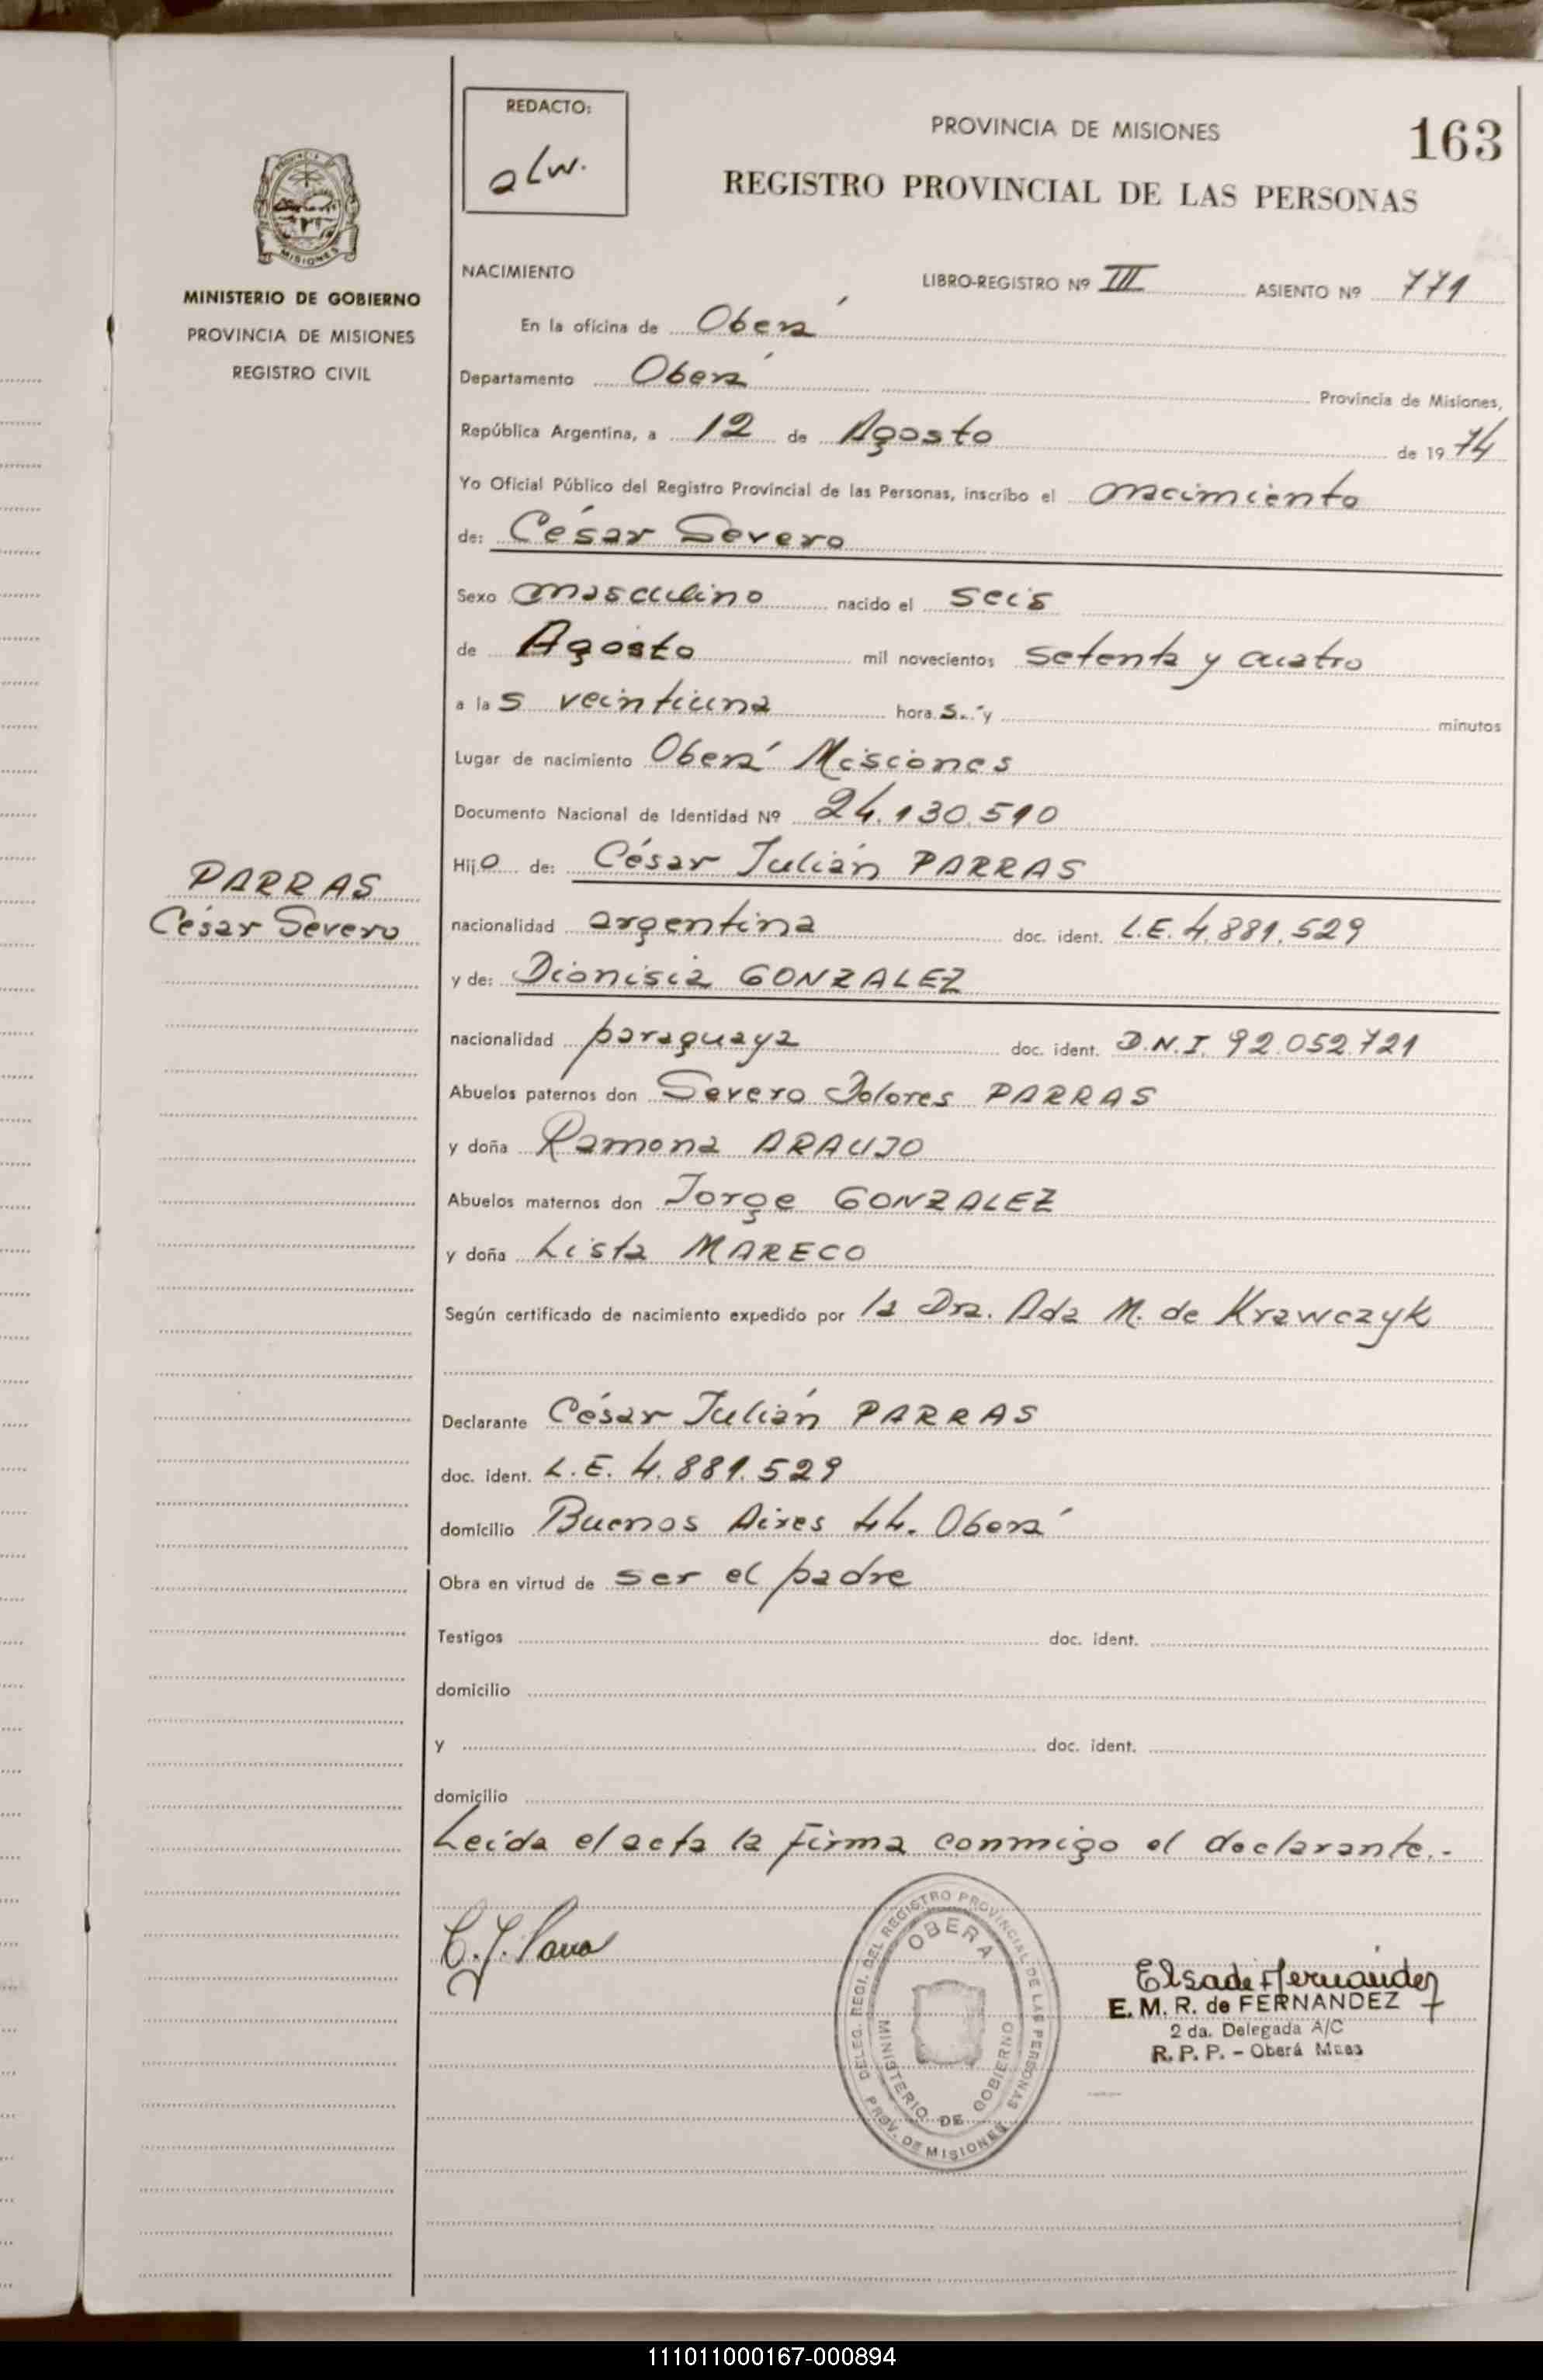 REDACTO:
alw.
PROVINCIA DE MISIONES
163
REGISTRO PROVINCIAL DE LAS PERSONAS
PROVINCIA DE
MISIONES
MINISTERIO DE GOBIERNO
PROVINCIA DE MISIONES
REGISTRO CIVIL
NACIMIENTO LIBRO-REGISTRO Nº III ASIENTO Nº 771
En la oficina de Oberá
Departamento Oberá Provincia de Misiones,
República Argentina, a 12 de Agosto de 1974
Yo Oficial Público del Registro Provincial de las Personas, inscribo el nacimiento
de: César Severo
Sexo masculino nacido el seis
de Agosto mil novecientos setenta y cuatro
a las veintiuna horas y minutos
Lugar de nacimiento Oberá Misiones
Documento Nacional de Identidad Nº 24.130.510
Hijo de: César Julián PARRAS
PARRAS
César Severo
nacionalidad argentina doc. ident. L.E. 4.881.529
y de: Dionisia GONZALEZ
nacionalidad paraguaya doc. ident. D.N.I. 92.052.721
Abuelos paternos don Severo Dolores PARRAS
y doña Ramona ARAUJO
Abuelos maternos don Jorge GONZALEZ
y doña Lista MARECO
Según certificado de nacimiento expedido por la Dra. Ada M. de Krawczyk
Declarante César Julián PARRAS
doc. ident. L.E. 4.881.529
domicilio Buenos Aires 44. Oberá
Obra en virtud de ser el padre
Testigos doc. ident.
domicilio
y doc. ident.
domicilio
Leída el acta la firma conmigo el declarante.-
DELEG. REGI. DEL REGISTRO PROVINCIAL DE LAS PERSONAS
OBERA
MINISTERIO DE GOBIERNO
PROV. DE MISIONES
Elsa de Fernández
E. M. R. de FERNANDEZ
2 da. Delegada A/C
R. P. P. - Oberá Mnes
111011000167-000894